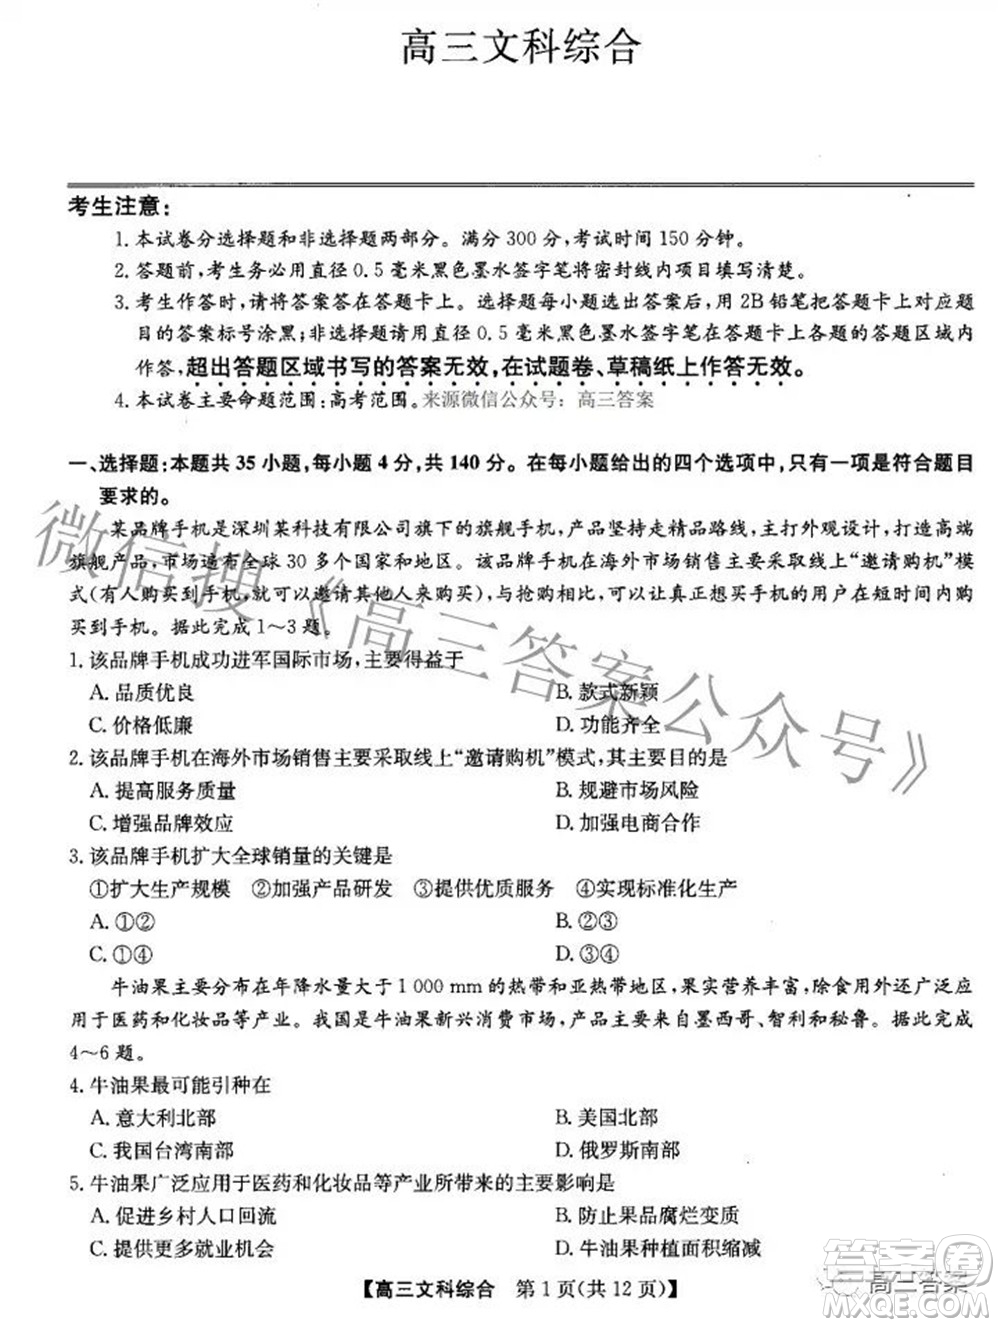 高三文科综合
考生注意：
1. 本试卷分选择题和非选择题两部分。满分300分，考试时间150分钟。
2. 答题前，考生务必用直径0.5毫米黑色墨水签字笔将密封线内项目填写清楚。
3. 考生作答时，请将答案答在答题卡上。选择题每小题选出答案后，用2B铅笔把答题卡上对应题
目的答案标号涂黑；非选择题请用直径0.5毫米黑色墨水签字笔在答题卡上各题的答题区域内
作答，超出答题区域书写的答案无效，在试题卷、草稿纸上作答无效。
4. 本试卷主要命题范围：高考范围。来源微信公众号：高三答案
一、选择题：本题共35小题，每小题4分，共140分。在每小题给出的四个选项中，只有一项是符合题目
要求的。
某品牌手机是深圳某科技有限公司旗下的旗舰手机，产品坚持走精品路线，主打外观设计，打造高端
旗舰产品，市场遍布全球30多个国家和地区。该品牌手机在海外市场销售主要采取线上“邀请购机”模
式(有人购买到手机，可以邀请其他人来购买)，与抢购相比，可以让真正想买手机的用户在短时间内购
买到手机。据此完成1～3题。
1. 该品牌手机成功进军国际市场，主要得益于
A. 品质优良
B. 款式新颖
C. 价格低廉
D. 功能齐全
2. 该品牌手机在海外市场销售主要采取线上“邀请购机”模式，其主要目的是
A. 提高服务质量
B. 规避市场风险
C. 增强品牌效应
D. 加强电商合作
3. 该品牌手机扩大全球销量的关键是
①扩大生产规模 ②加强产品研发 ③提供优质服务 ④实现标准化生产
A. ①②
B. ②③
C. ①④
D. ③④
牛油果主要分布在年降水量大于1 000 mm的热带和亚热带地区，营养丰富，除食用外还广泛应
用于医药和化妆品等产业。我国是牛油果新兴消费市场，产品主要来自墨西哥、智利和秘鲁。据此完成
4～6题。
4. 牛油果最可能引种在
A. 意大利北部
B. 美国北部
C. 我国台湾南部
D. 俄罗斯南部
5. 牛油果广泛应用于医药和化妆品等产业所带来的主要影响是
A. 促进乡村人口回流
B. 防止果品腐烂变质
C. 提供更多就业机会
D. 牛油果种植面积缩减
【高三文科综合 第1页(共12页)】
微信搜《高三答案公众号》
高三答案
答案圈
MXQE.COM